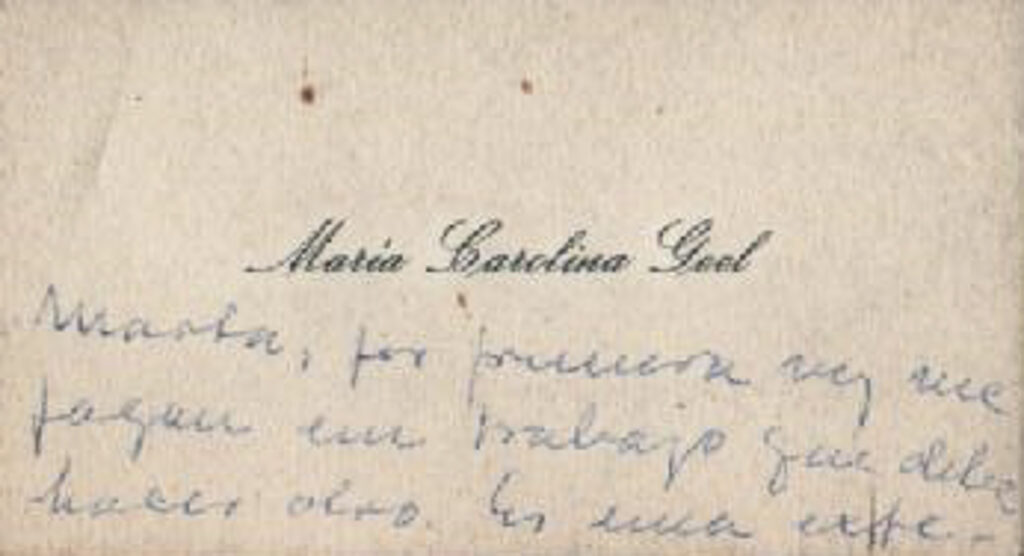 María Carolina Geel
Marta, por primera vez me
pagan un trabajo que debió
hacer otro. Es una expe-